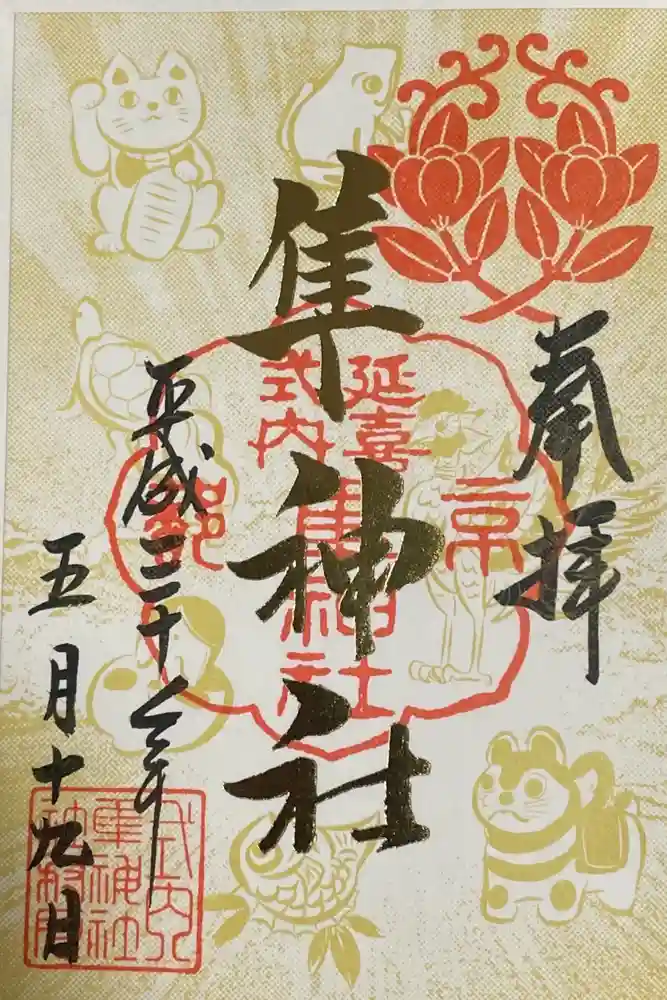 奉拝
隼神社
平成三十年
五月十九日
延喜
式内
隼神社
京都
式内
隼神社